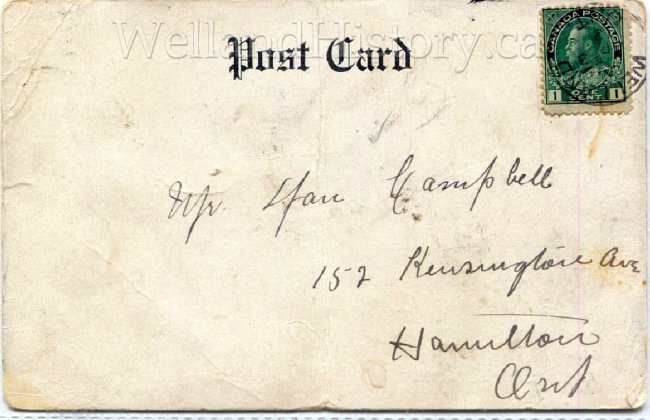 WellandHistory.ca
Post Card
CANADA POSTAGE
1 CENT 1
WE
Mr. Campbell
152 Kensington Ave
Hamilton
Ont